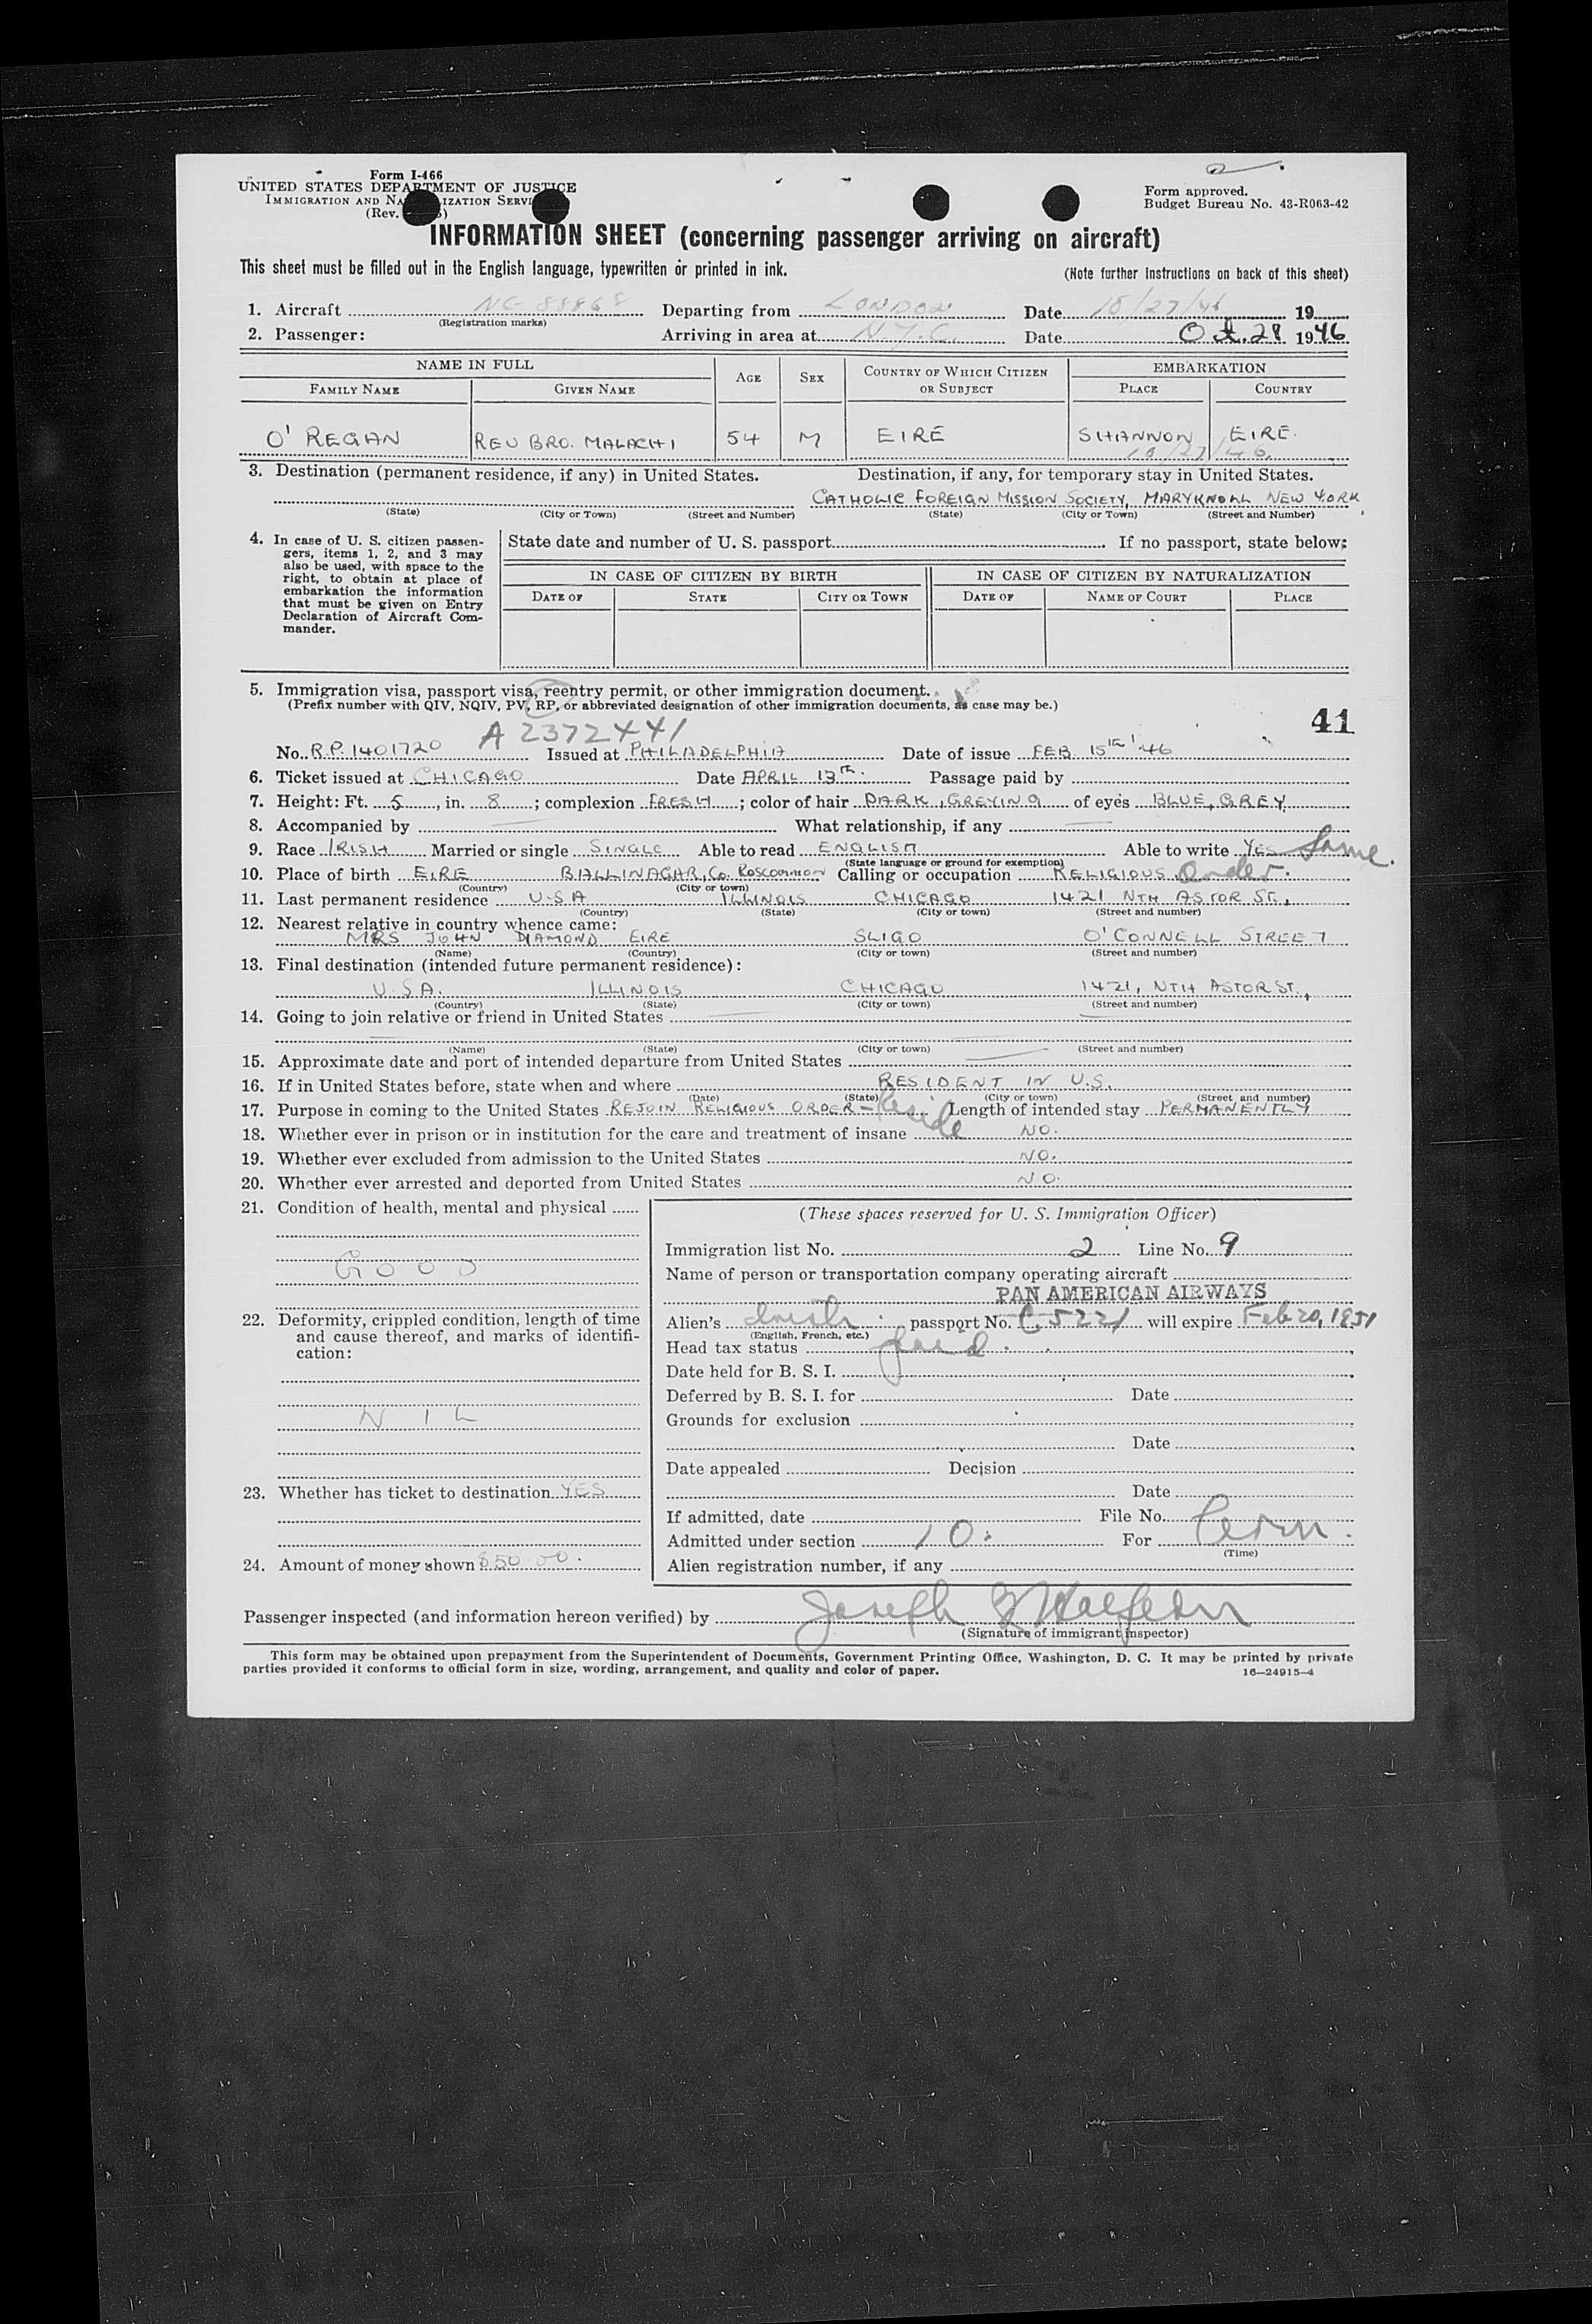 Form I-466
UNITED STATES DEPARTMENT OF JUSTICE
IMMIGRATION AND NA IZATION SERVI
(Rev. )
Form approved.
Budget Bureau No. 43-R063-42
INFORMATION SHEET (concerning passenger arriving on aircraft)
This sheet must be filled out in the English language, typewritten or printed in ink.
(Note further instructions on back of this sheet)
1. Aircraft NC 88868 Departing from LONDON Date 10/27/46 19
(Registration marks)
2. Passenger: Arriving in area at N.Y.C. Date Oct. 28 1946
NAME IN FULL AGE SEX COUNTRY OF WHICH CITIZEN OR SUBJECT EMBARKATION
FAMILY NAME GIVEN NAME PLACE COUNTRY
O'REGAN REV BRO. MALACHI 54 M EIRE SHANNON EIRE.
10/27/46
3. Destination (permanent residence, if any) in United States. Destination, if any, for temporary stay in United States.
CATHOLIC FOREIGN MISSION SOCIETY, MARYKNOLL NEW YORK
(State) (City or Town) (Street and Number) (State) (City or Town) (Street and Number)
4. In case of U. S. citizen passengers, items 1, 2, and 3 may also be used, with space to the right, to obtain at place of embarkation the information that must be given on Entry Declaration of Aircraft Commander.
State date and number of U. S. passport If no passport, state below:
IN CASE OF CITIZEN BY BIRTH IN CASE OF CITIZEN BY NATURALIZATION
DATE OF STATE CITY OR TOWN DATE OF NAME OF COURT PLACE
5. Immigration visa, passport visa, reentry permit, or other immigration document.
(Prefix number with QIV, NQIV, PV, RP, or abbreviated designation of other immigration documents, as case may be.)
41
A 2372441
No. R.P. 1401720 Issued at PHILADELPHIA Date of issue FEB. 15th '46
6. Ticket issued at CHICAGO Date APRIL 13th. Passage paid by
7. Height: Ft. 5, in. 8; complexion FRESH; color of hair DARK, GREYING of eyes BLUE, GREY
8. Accompanied by — What relationship, if any —
9. Race IRISH Married or single SINGLE Able to read ENGLISH Able to write YES Same.
(State language or ground for exemption)
10. Place of birth EIRE BALLINAGAR, Co. ROSCOMMON Calling or occupation RELIGIOUS Order.
(Country) (City or town)
11. Last permanent residence U.S.A ILLINOIS CHICAGO 1421 NTH ASTOR ST.,
(Country) (State) (City or town) (Street and number)
12. Nearest relative in country whence came:
MRS JOHN DIAMOND EIRE SLIGO O'CONNELL STREET
(Name) (Country) (City or town) (Street and number)
13. Final destination (intended future permanent residence):
U.S.A. ILLINOIS CHICAGO 1421, NTH ASTOR ST.,
(Country) (State) (City or town) (Street and number)
14. Going to join relative or friend in United States —
(Name) (State) (City or town) (Street and number)
15. Approximate date and port of intended departure from United States —
16. If in United States before, state when and where RESIDENT IN U.S.
(Date) (State) (City or town) (Street and number)
17. Purpose in coming to the United States REJOIN RELIGIOUS ORDER - Reside Length of intended stay PERMANENTLY
18. Whether ever in prison or in institution for the care and treatment of insane NO.
19. Whether ever excluded from admission to the United States NO.
20. Whether ever arrested and deported from United States NO.
21. Condition of health, mental and physical
GOOD
22. Deformity, crippled condition, length of time and cause thereof, and marks of identification:
NIL
23. Whether has ticket to destination YES
24. Amount of money shown $50.00.
(These spaces reserved for U. S. Immigration Officer)
Immigration list No. 2 Line No. 9
Name of person or transportation company operating aircraft
PAN AMERICAN AIRWAYS
Alien's Irish passport No. C 5221 will expire Feb 20, 1951
(English, French, etc.)
Head tax status paid.
Date held for B. S. I.
Deferred by B. S. I. for Date
Grounds for exclusion
Date
Date appealed Decision
Date
If admitted, date File No.
Admitted under section 10. For Perm.
(Time)
Alien registration number, if any
Passenger inspected (and information hereon verified) by Joseph
(Signature of immigrant inspector)
This form may be obtained upon prepayment from the Superintendent of Documents, Government Printing Office, Washington, D. C. It may be printed by private
parties provided it conforms to official form in size, wording, arrangement, and quality and color of paper. 16—24915-4